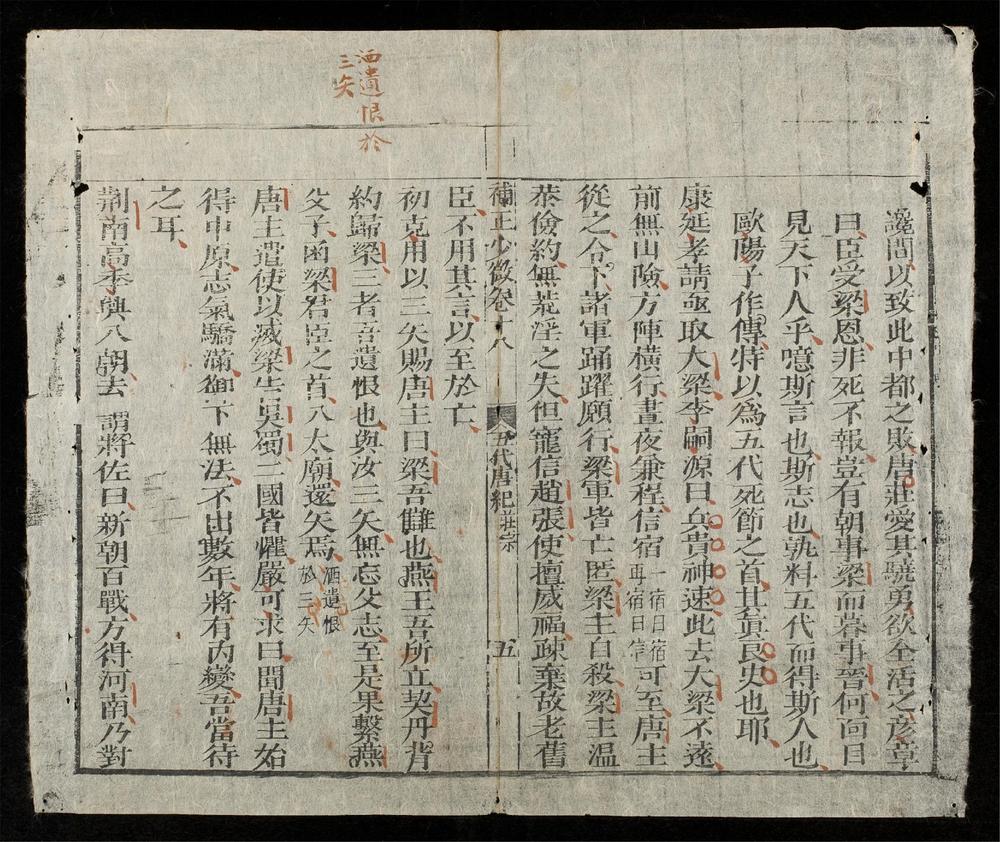 洒遺恨於
三矣
讒間以致此中都之敗唐莊愛其驍勇欲全活之彥章
曰臣受梁恩非死不報豈有朝事梁而暮事晉何面目
見天下人乎噫斯言也斯志也孰料五代而得斯人也
歐陽子作傳特以為五代死節之首其真良史也耶
康延孝請亟取大梁李嗣源曰兵貴神速此去大梁不遠
前無山險方陣橫行晝夜兼程信宿一宿曰宿再宿曰信可至唐主
從之令下諸軍踊躍願行梁軍皆亡匿梁主自殺梁主溫
恭儉約無荒淫之失但寵信趙張使擅威福疎棄故老舊
補正少微卷十八 五代唐紀莊宗 五
臣不用其言以至於亡
初克用以三矢賜唐主曰梁吾讎也燕王吾所立契丹背
約歸梁三者吾遺恨也與汝三矢無忘父志至是果繫燕
父子函梁君臣之首入太廟還矢焉洒遺恨於三矢
唐主遣使以滅梁告吳蜀二國皆懼嚴可求曰聞唐主始
得中原志氣驕滿御下無法不出數年將有內變吾當待
之耳
荆南高季興入朝去 謂將佐曰新朝百戰方得河南乃對